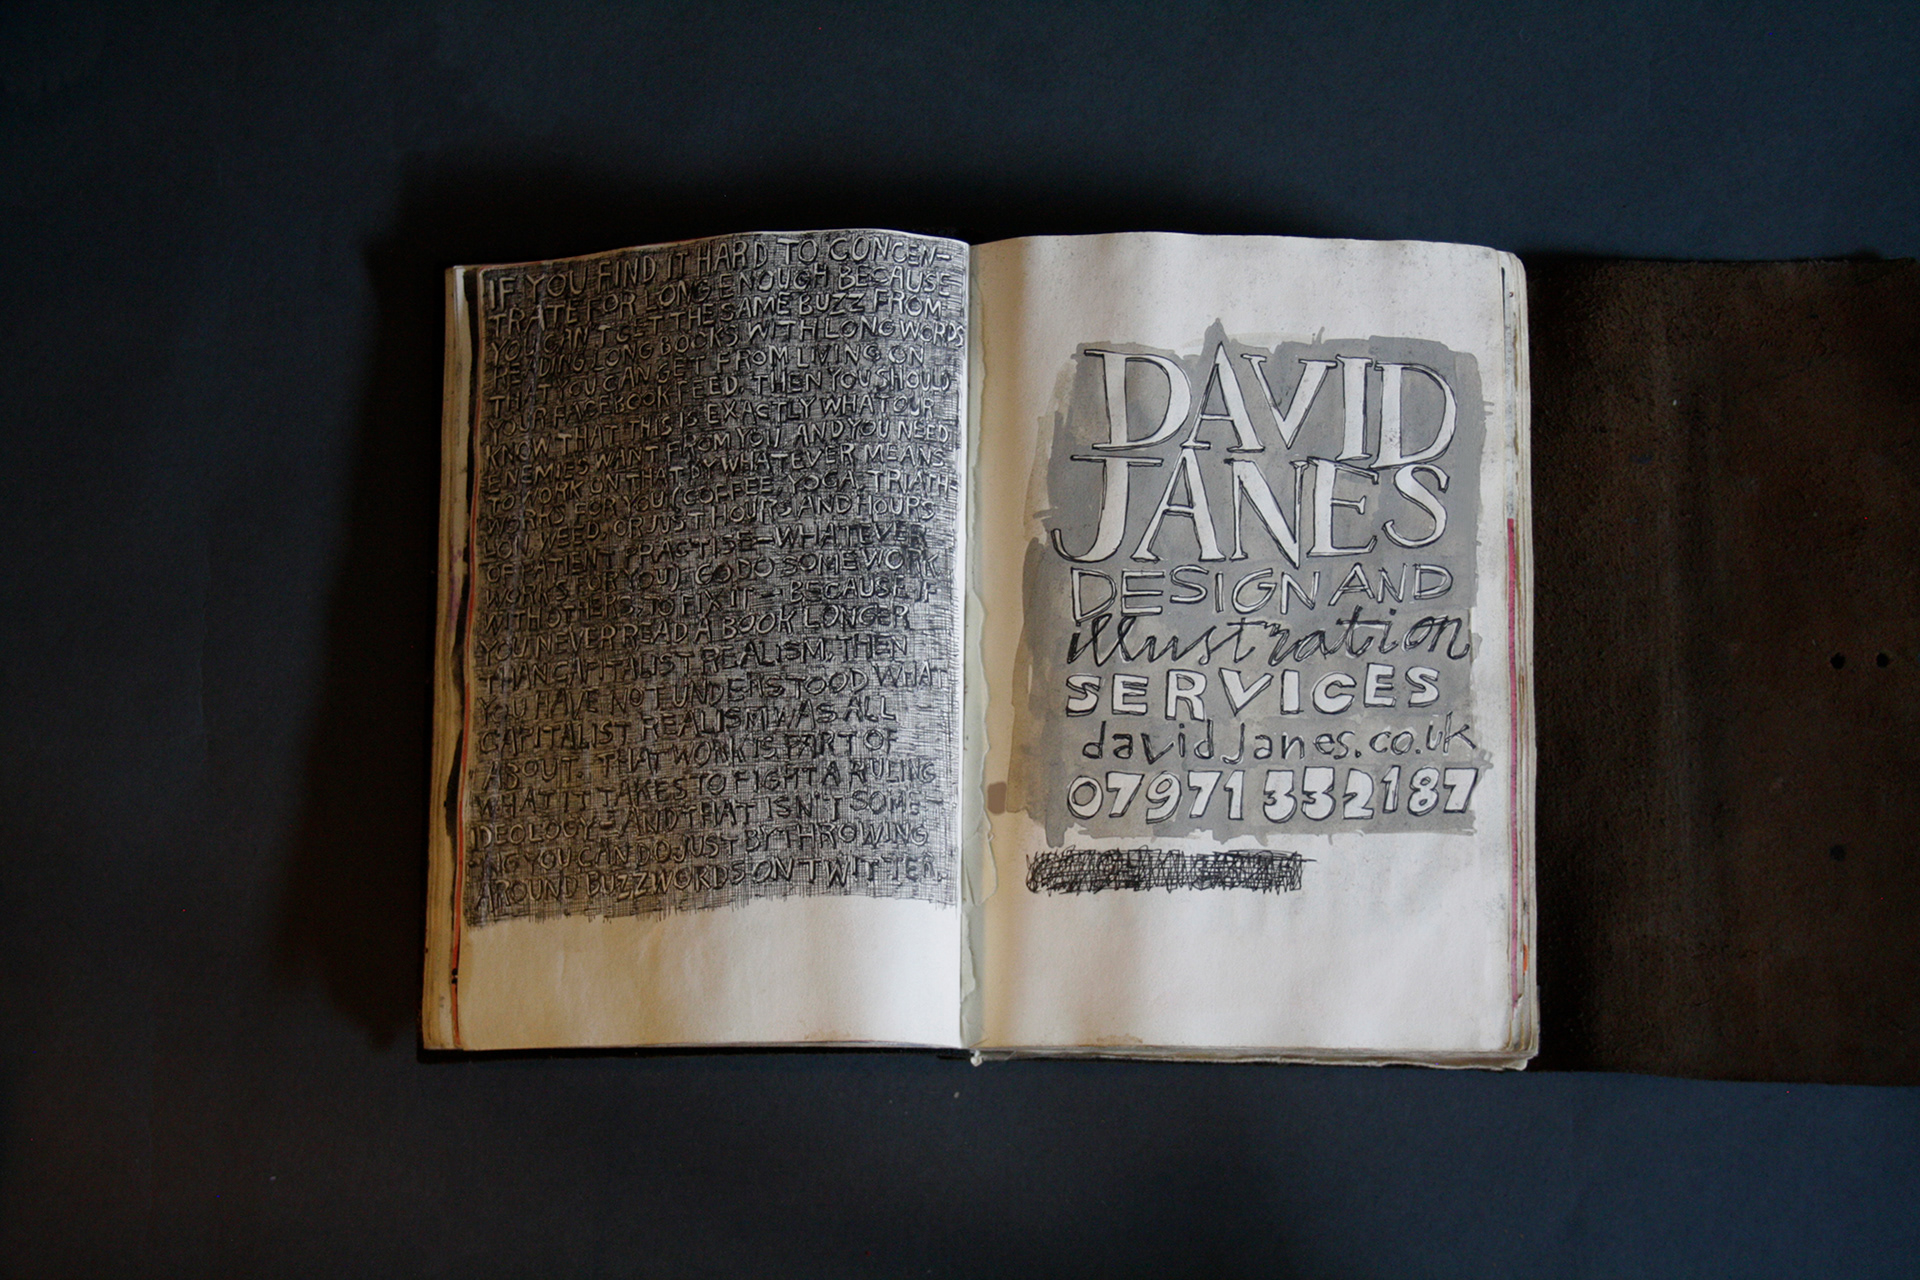 IF YOU FIND IT HARD TO CONCEN-
TRATE FOR LONG ENOUGH BECAUSE
YOU CAN'T GET THE SAME BUZZ FROM
READING LONG BOOKS WITH LONG WORDS
THAT YOU CAN GET FROM LIVING ON
YOUR FACEBOOK FEED, THEN YOU SHOULD
KNOW THAT THIS IS EXACTLY WHAT OUR
ENEMIES WANT FROM YOU AND YOU NEED
TO WORK ON THAT BY WHATEVER MEANS
WORKS FOR YOU (COFFEE, YOGA, TRIATH-
LON, WEED, OR JUST HOURS AND HOURS
OF PATIENT PRACTISE—WHATEVER
WORKS FOR YOU) GO DO SOME WORK
WITH OTHERS, TO FIX IT – BECAUSE IF
YOU NEVER READ A BOOK LONGER
THAN CAPITALIST REALISM, THEN
YOU HAVE NOT UNDERSTOOD WHAT
CAPITALIST REALISM WAS ALL
ABOUT. THAT WORK IS PART OF
WHAT IT TAKES TO FIGHT A RULING
IDEOLOGY – AND THAT ISN'T SOME-
ING YOU CAN DO JUST BY THROWING
AROUND BUZZWORDS ON TWITTER.
DAVID
JANES
DESIGN AND
illustration
SERVICES
davidjanes.co.uk
07971 332187